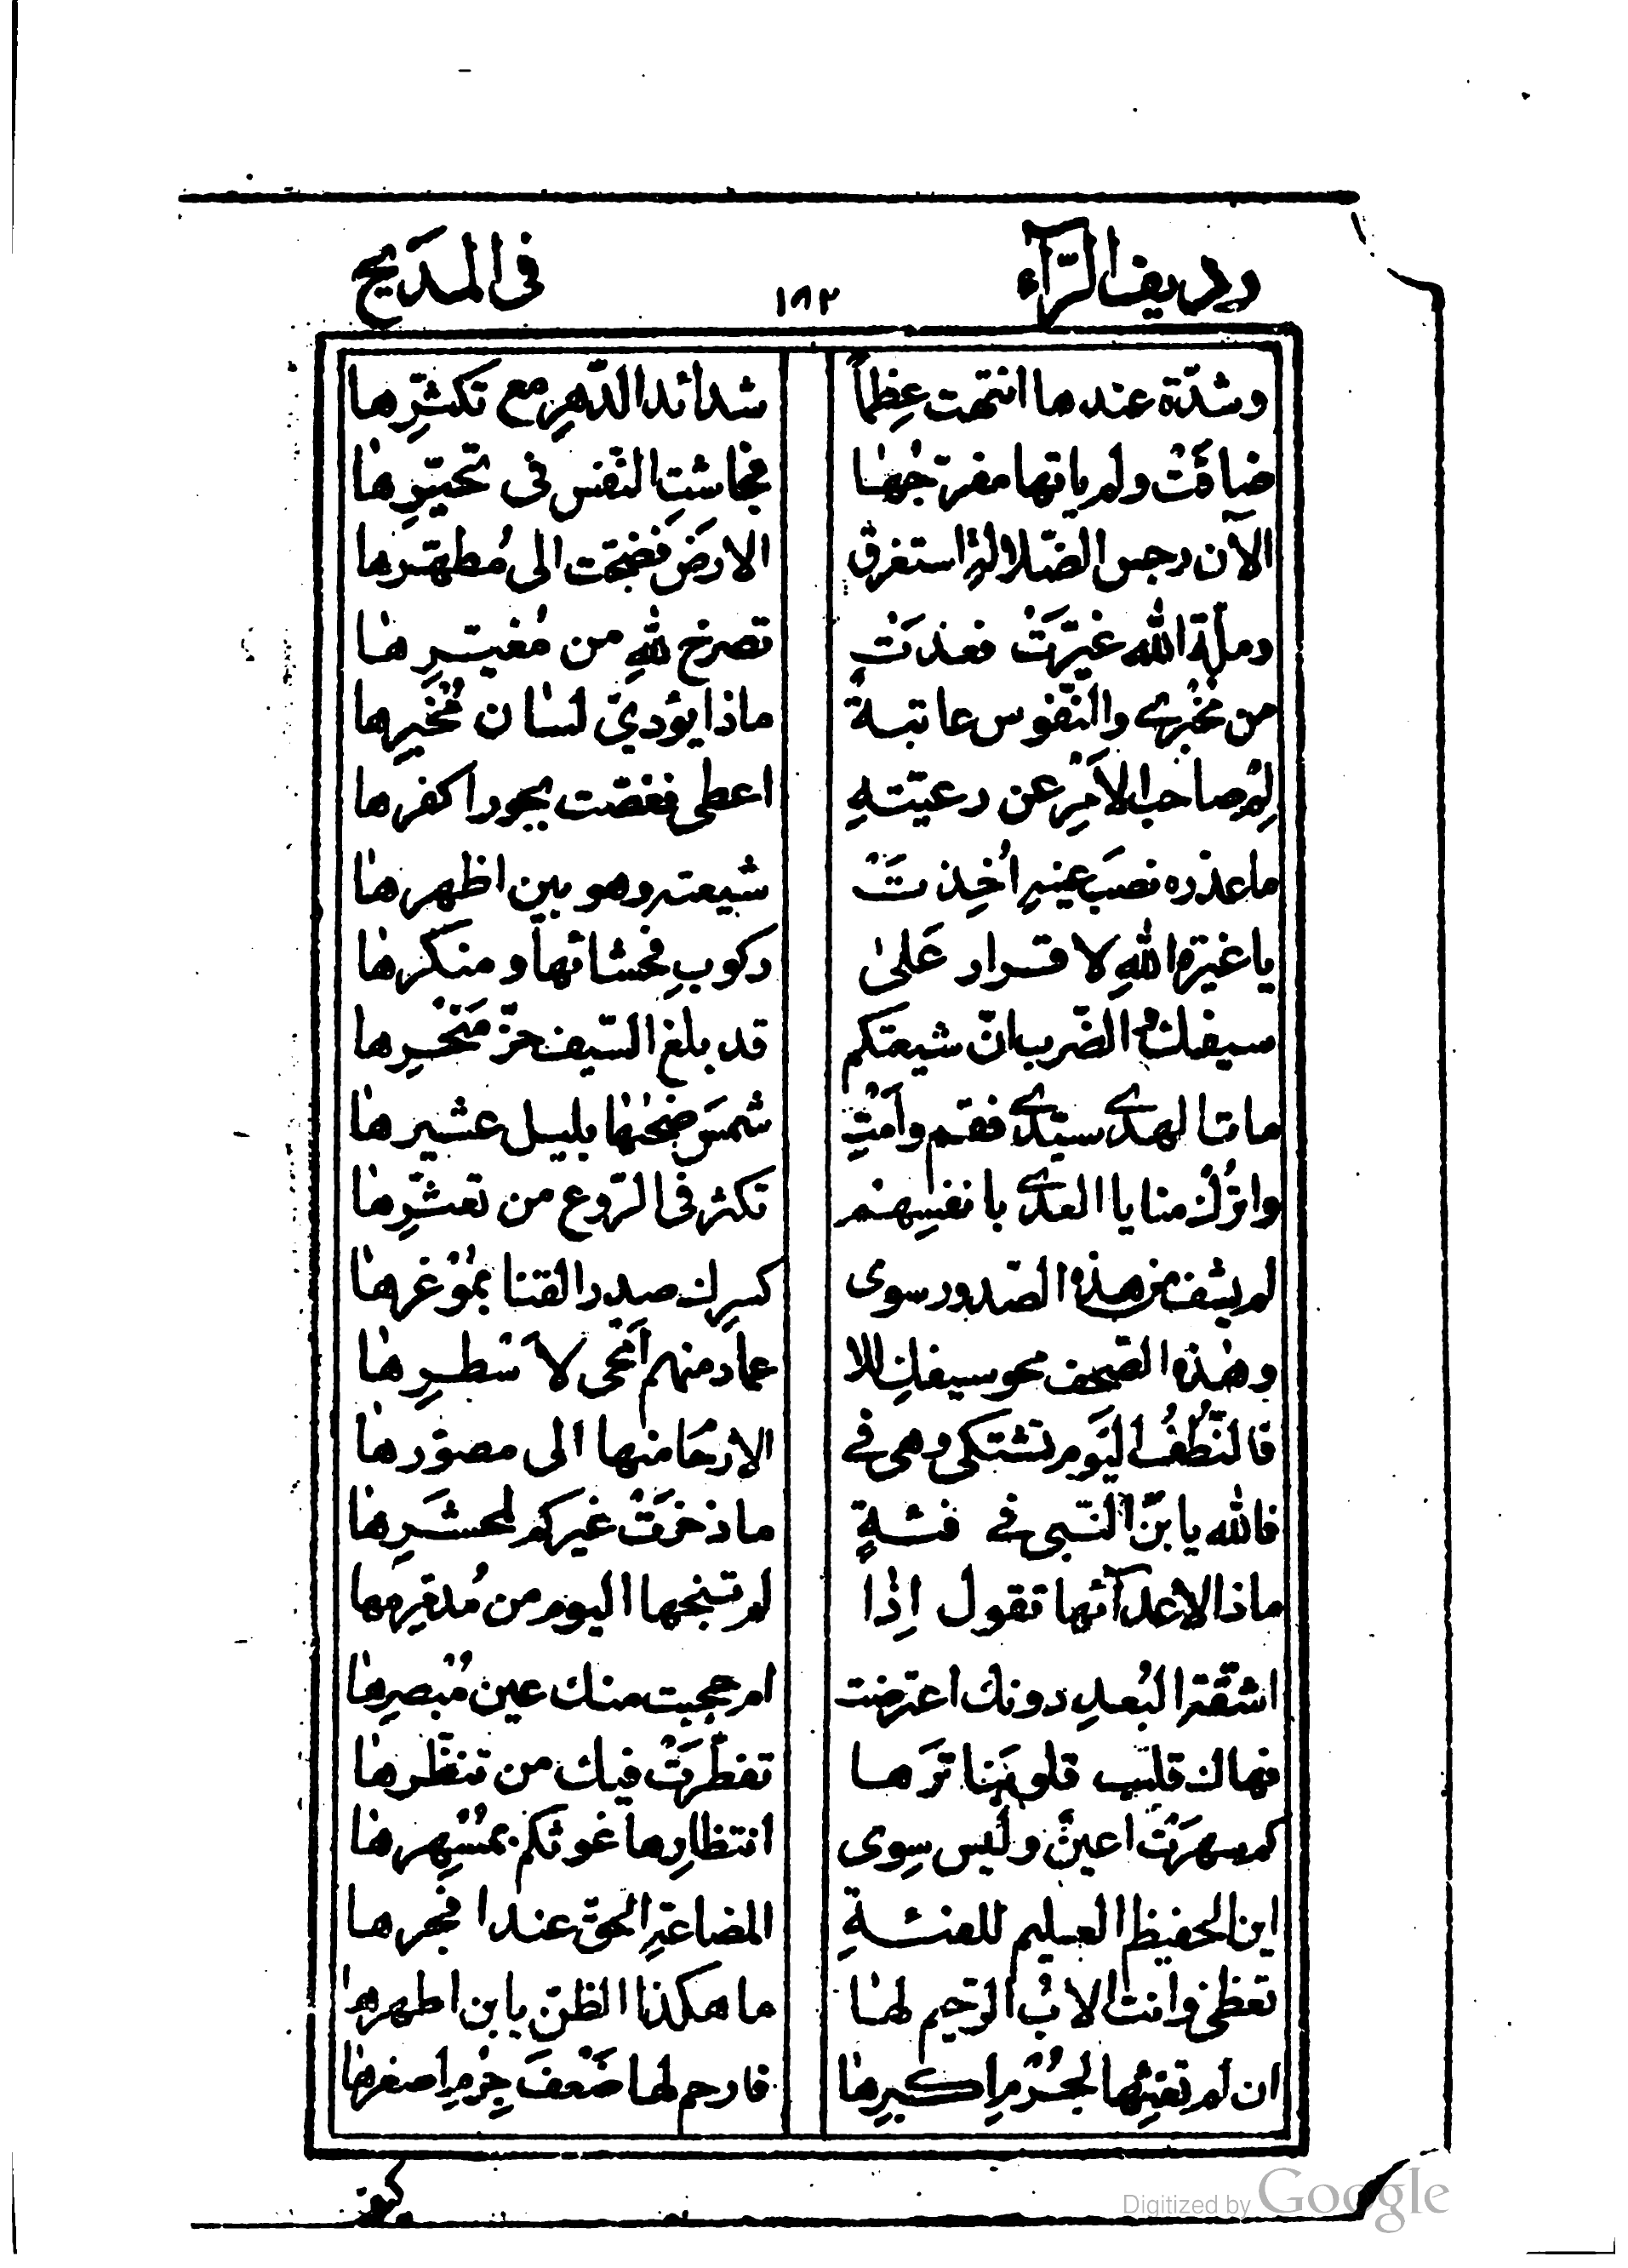 رديف الرّآء ١٨٢ فى المديح
وشدّة عندها انتهت عِظماً شدائد الدّهرِ مع تكثّرِها
ضاقَتْ ولم ياتها مفرّجُها فجاشتِ النّفس فى تحيّرِها
الآن رجس الضّلال استغرق الارضَ فضجّت الى مُطهّرها
وملّة الله غيّرَتْ فغدَتْ تصرخ للهِ من مُغيّرِها
من مُخبرى والنّفوس عاتبةٌ ماذا يؤديّ لسان مُخبرِها
لِمْ صاحب الاَمْرِ عن رعيّتهِ اعطى فغضّت بجور اكفرها
ما عذره نصبَ عينهِ اُخِذتَْ شيعته وهو بين اظهرها
يا غيرة اللهِ لا قرار عَلىٰ ركوبِ فحشائها ومنكرها
سيفك والضّرب انّ شيعتكم قد بلغ السّيف حزّ مَنْحرِها
مات الهدى سيّدى فقم وامِتْ شمسَ ضحٰها بليل عشيرها
واترُكْ منايا العدى بانفسِهم تكثر فى الرّوع من تعثّرِها
لم يشف من هذه الصّدور سوى كسرك صدر القنا بموْغرها
وهٰذه الصّحف محو سيفك للا عمار منهم اَمْحى لاَسْطرِها
فالنّطُفُ اليَوم تشتكى وهى فى الارحُام منها الى مصوّرها
فالله يا بنَ النّبى فى فئةٍ ما ذخرَتْ غيركم لمحشَرِها
ماذا لاعدآئها تقول اِذا لم تنجها اليوم من مُدمّرِها
اشقّة البُعدِ دونك اعترضت ام حجبت منك عين مُبصرِها
فهاك قلّب قلوبَنا ترَها تفطّرَتْ فيك من تنظّرها
كم سهرَتْ اعينٌ وليس سِوى انتظارِها غوثكم بمُسْهِرها
اين الحفيظ العليم للفئةِ المضاعةِ الحقّ عند افجرها
تغظى وانت الابُ الرّحيم لها ما هكذا الظنّ يا بن اطهرها
ان لم تغثها لجُرْمِ اكبرِها فارحم لها ضَعْفَ جِرْمِ اصغرها
Digitized by Google